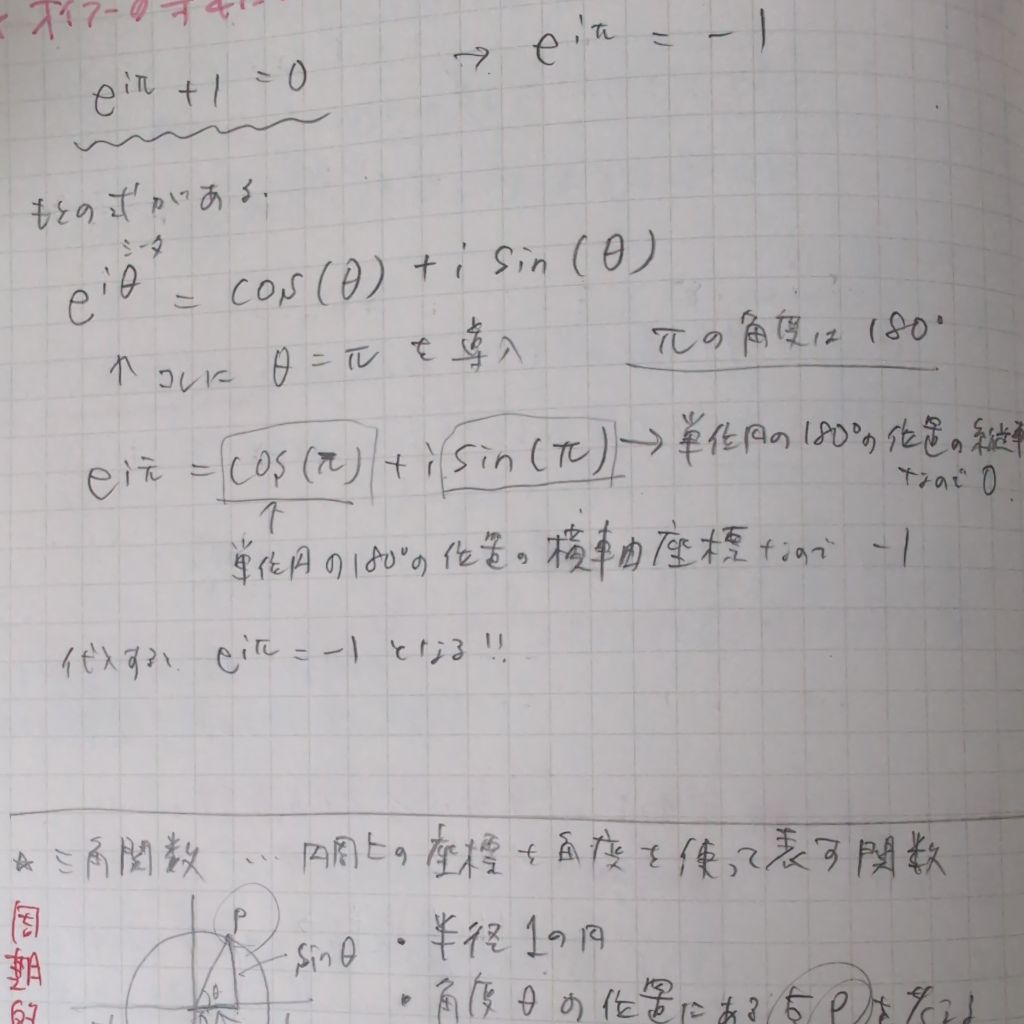 オイラーの
e^{iπ} + 1 = 0 → e^{iπ} = -1
もとの式がある.
シータ
e^{iθ} = cos(θ) + i sin(θ)
↑ コレに θ = π を導入 πの角度は 180°
e^{iπ} = cos(π) + i sin(π) → 単位円の180°の位置の縦軸
なので 0
↑
単位円の180°の位置の横軸座標なので -1
代入すると e^{iπ} = -1 となる!!
☆ 三角関数 … 円周上の座標を角度を使って表す関数
P
sinθ
θ
・半径 1の円
・角度 θ の位置にある点 P を
周期